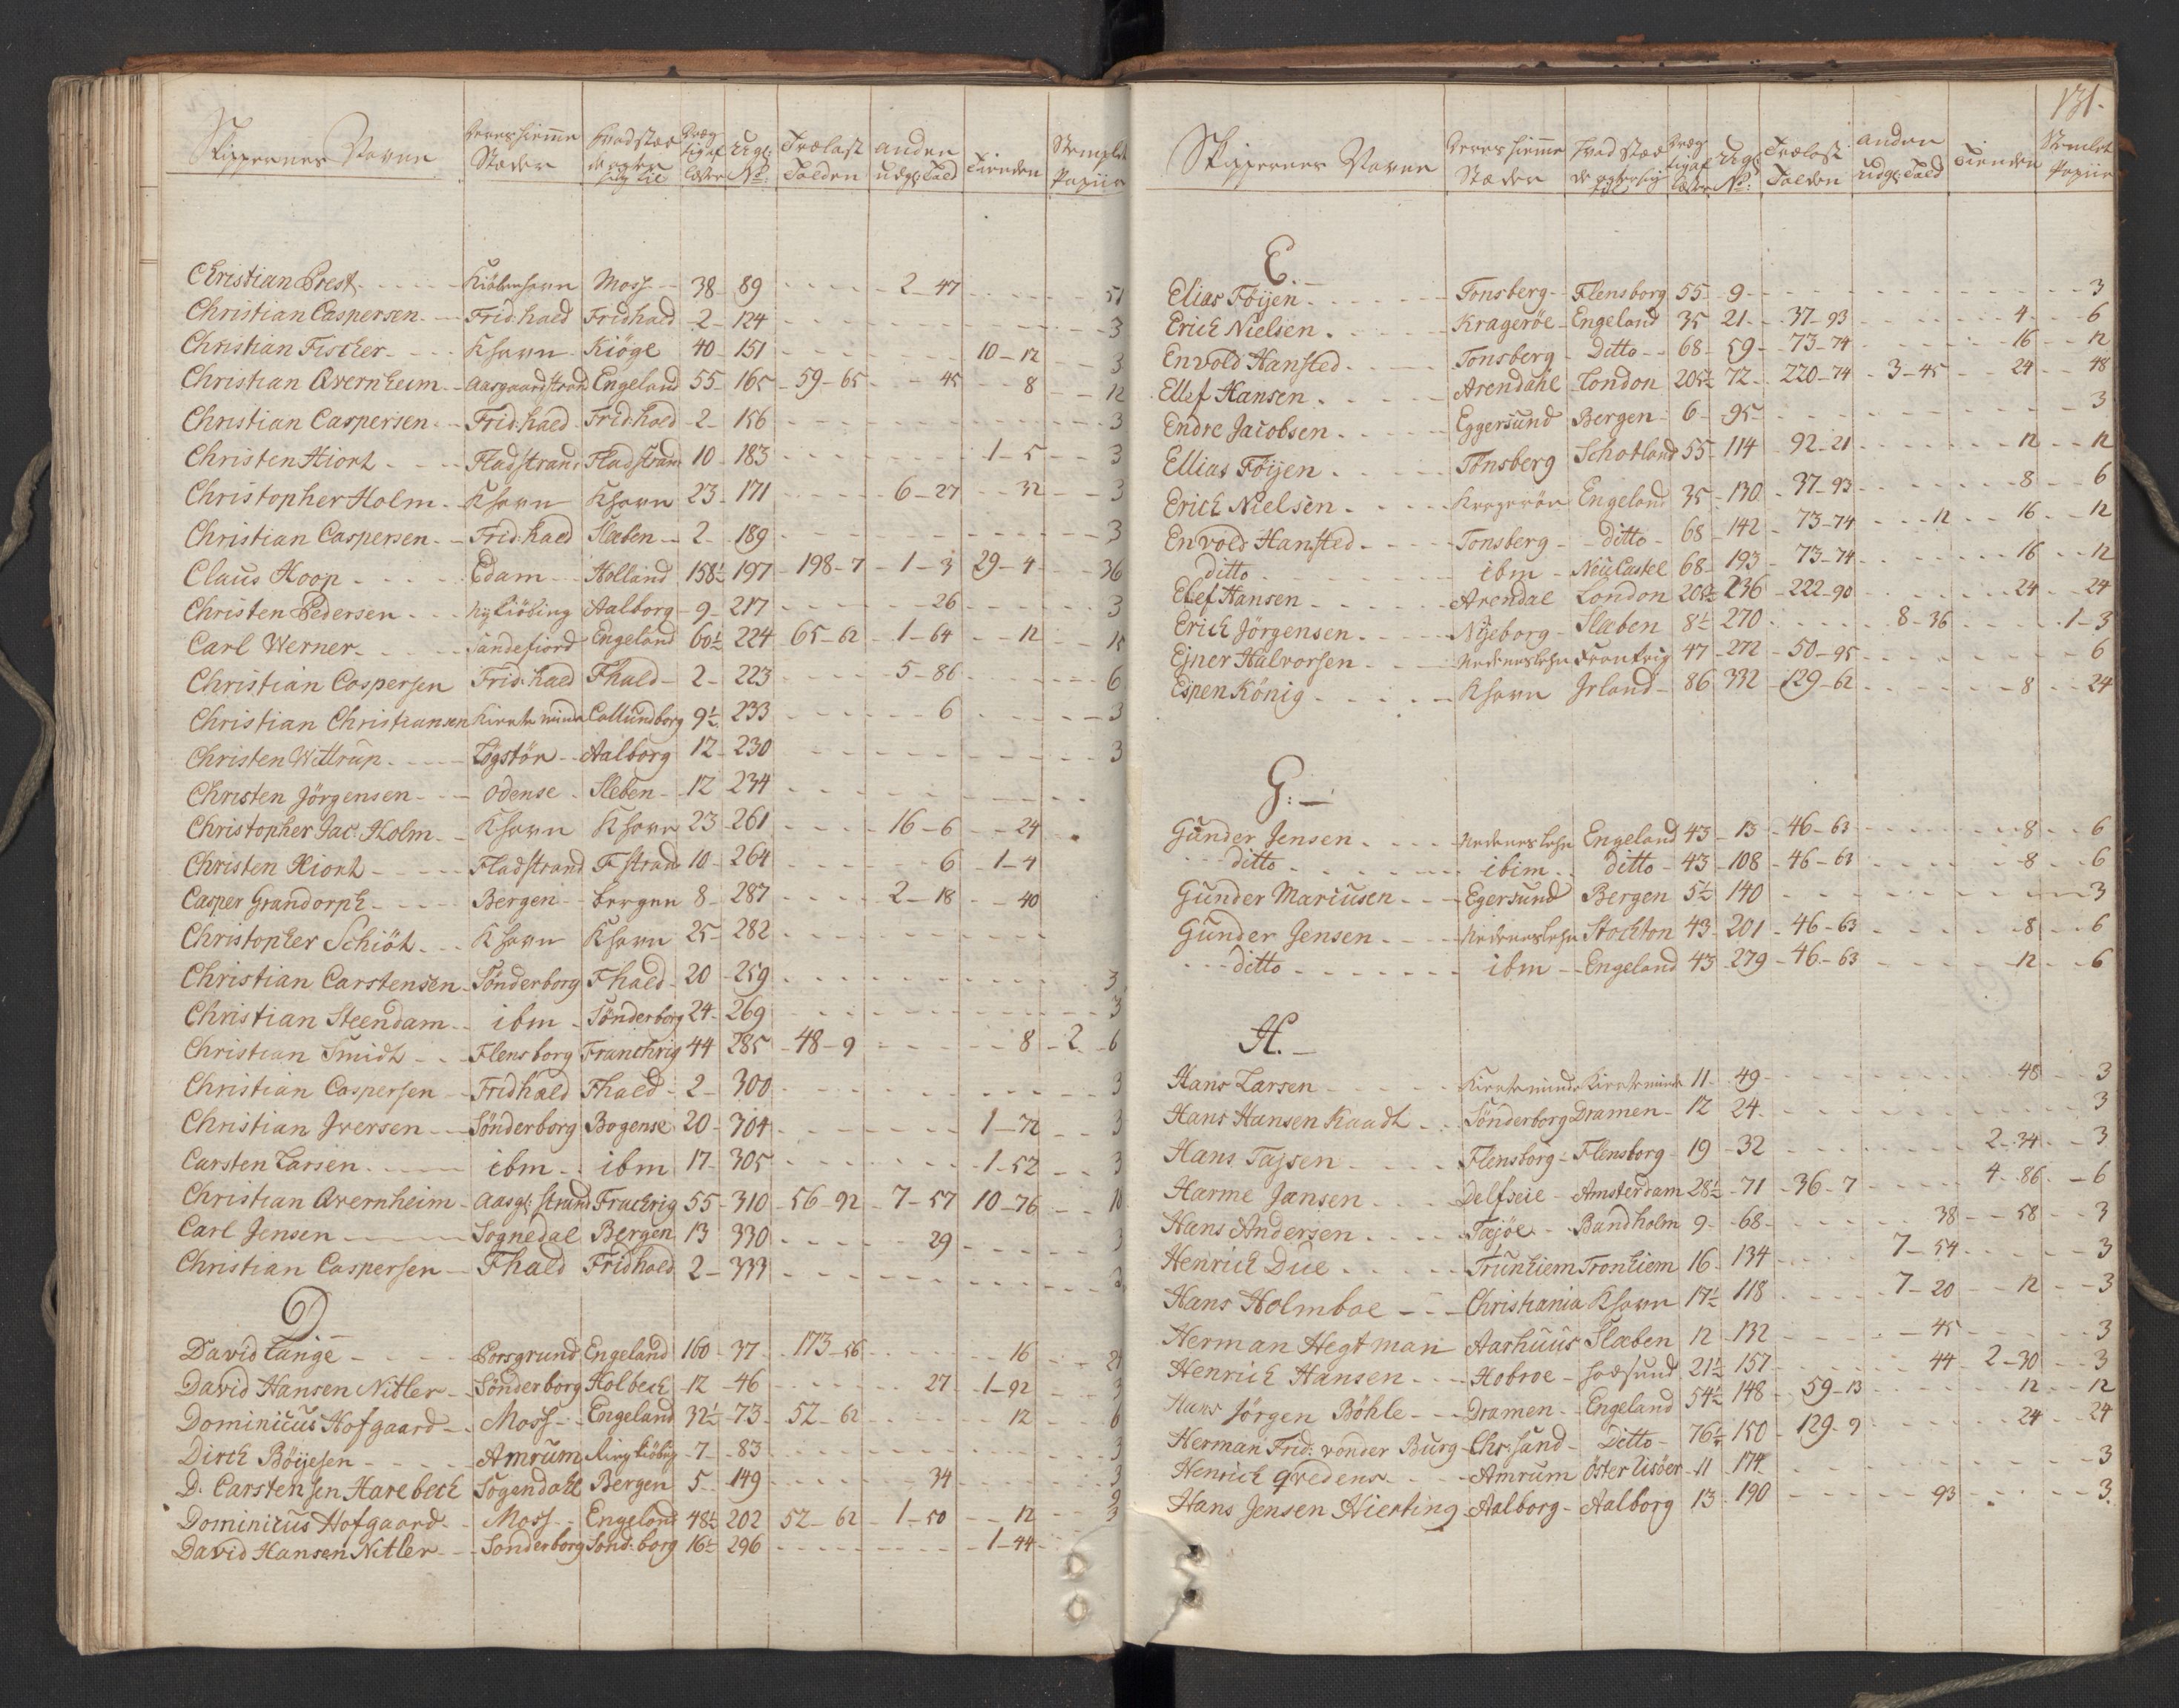 Skippernes Navne | Deres hiemme Stæder | Hvad stæd de agter sig til | Dræg tig af læster | Udgl: No: | Trælast Tolden | anden udgl: Told | Tienden | Stemplet Papiir
Christian Prest | Kiöbenhavn | Moss | 38 | 89 | 2-47 | 51
Christian Caspersen | Fridhald | Fridhald | 2 | 124 | 3
Christian Fischer | Khavn | Kiöge | 40 | 151 | 10-12 | 3
Christian Qvernheim | Aasgaardstrand | Engeland | 55 | 165 | 59-65 | 45 | 8 | 12
Christian Caspersen | Fridhald | Fridhald | 2 | 156 | 3
Christen Hiort | Fladstrand | Fladstrand | 10 | 183 | 1-5 | 3
Christopher Holm | Khavn | Khavn | 23 | 171 | 6-27 | 32 | 3
Christian Caspersen | Fridhald | Slæben | 2 | 189 | 3
Claus Hoop | Edam | Holland | 158½ | 197 | 198-7 | 1-3 | 29-4 | 36
Christen Pedersen | Nykiöbing | Aalborg | 9 | 217 | 26 | 3
Carl Werner | Sandefiord | Engeland | 60½ | 224 | 65-62 | 1-64 | 12 | 15
Christian Caspersen | Frid:hald | Fhald | 2 | 223 | 5-86 | 6
Christian Christiansen | Kierteminde | Callundborg | 9½ | 233 | 6 | 3
Christen Wittrup | Lögstör | Aalborg | 12 | 230 | 3
Christen Jörgensen | Odense | Sleben | 12 | 234
Christopher Jac: Holm | Khavn | Khavn | 23 | 261 | 16-6 | 24
Christen Hiort | Fladstrand | Fstrand | 10 | 264 | 6 | 1-4
Casper Grandorph | Bergen | bergen | 8 | 287 | 2-18 | 40
Christopher Schiöt | Khavn | Khavn | 25 | 282
Christian Carstensen | Sönderborg | Fhald | 20 | 259 | 3
Christian Steendam | ibm | Sönderborg | 24 | 269 | 3
Christian Smidt | Flensborg | Franchrig | 44 | 285 | 48-9 | 8 | 2-6
Christian Caspersen | Fridhald | Fhald | 2 | 300 | 3
Christian Iversen | Sönderborg | Bogense | 20 | 304 | 1-72 | 3
Carsten Larsen | ibm | ibm | 17 | 305 | 1-52 | 3
Christian Qvernheim | Aasg: strand | Frachrig | 55 | 310 | 56-92 | 7-57 | 10-76 | 18
Carl Jensen | Sognedal | Bergen | 13 | 330 | 29 | 3
Christian Caspersen | Fhald | Fridhald | 2 | 333 | 3
D
David Lange | Porsgrund | Engeland | 160 | 37 | 173-56 | 16 | 24
David Hansen Nitler | Sönderborg | Holbech | 12 | 46 | 27 | 1-92 | 3
Dominicus Hofgaard | Moss | Engeland | 32½ | 73 | 52-62 | 12 | 6
Dirch Böijesen | Amrum | Ringkiöbing | 7 | 83 | 3
D. Carstensen Harebech | Sogendahl | Bergen | 5 | 149 | 34 | 3
Dominicus Hofgaard | Moss | Engeland | 48½ | 202 | 52-62 | 1-50 | 12 | 9
David Hansen Nitler | Sonderborg | Sond:borg | 16½ | 296 | 1-44 | 3
131.
Skippernes Navne | Deres hiemme Stæder | Hvad stæd de agter sig til | Dræg tig af læster | Udgl: No: | Trælast Tolden | anden Udgl: Told | Tienden | Stemlet Papiir
E.
Elias Föijen | Tonsberg | Flensborg | 55 | 9 | 3
Erich Nielsen | Krageröe | Engeland | 35 | 21 | 37-93 | 4 | 6
Envold Hansted | Tonsberg | Ditto | 68 | 59 | 73-74 | 16 | 12
Ellef Hansen | Arendahl | London | 205½ | 72 | 220-74 | 3-45 | 24 | 48
Endre Jacobsen | Eggersund | Bergen | 6 | 95 | 3
Ellias Föijen | Tönsberg | Schotland | 55 | 114 | 92-21 | 12 | 12
Erich Nielsen | Kragerön | Engeland | 35 | 130 | 37-93 | 8 | 6
Envold Hansted | Tonsberg | ditto | 68 | 142 | 73-74 | 12 | 16 | 12
ditto | ibm | NeüCastel | 68 | 193 | 73-74 | 16 | 12
Elef Hansen | Arendal | London | 208½ | 236 | 222-90 | 24 | 24
Erich Jörgensen | Nijeborg | Slæben | 8½ | 270 | 8-36 | 1-3
Ejner Halvorsen | Nedeneslehn | Frankrig | 47 | 272 | 50-95 | 6
Espen König | Khavn | Irland | 86 | 332 | 129-62 | 8 | 24
G:
Gunder Jensen | Nedeneslehn | Engeland | 43 | 13 | 46-63 | 8 | 6
ditto | ibim | ditto | 43 | 108 | 46-63 | 8 | 6
Gunder Mariusen | Egersund | Bergen | 5½ | 140 | 3
Gunder Jensen | Nedeneslehn | Stockton | 43 | 201 | 46-63 | 8 | 6
ditto | ibm | Engeland | 43 | 279 | 46-63 | 12 | 6
H.
Hans Larsen | Kierteminde | Kierteminde | 11 | 49 | 48 | 3
Hans Hansen Kaadt | Sönderborg | Dramen | 12 | 24 | 3
Hans Tajsen | Flensborg | Flensborg | 19 | 32 | 2-34 | 3
Harme Jansen | Delfseil | Amsterdam | 28½ | 71 | 36-7 | 4-86 | 6
Hans Andersen | Fajöe | Bandholm | 9 | 68 | 38 | 58 | 3
Henrich Due | Trünhiem | Tronhiem | 16 | 134 | 7-54 | 3
Hans Holmboe | Christiania | Khavn | 17½ | 118 | 7-20 | 12 | 3
Herman Hegtman | Aarhuus | Slæben | 12 | 132 | 45 | 3
Henrich Hansen | Hobroe | hadsund | 21½ | 157 | 44 | 2-30 | 3
Hans Jörgen Böhle | Dramen | Engeland | 54½ | 148 | 59-13 | 12 | 12
Herman Frid: vonder Burg | Chr:sand | Ditto | 76½ | 150 | 129-9 | 24 | 24
Henrich Qvedens | Amrum | Österlisöer | 11 | 174 | 3
Hans Jensen Hierting | Aalborg | Aalborg | 13 | 190 | 93 | 3